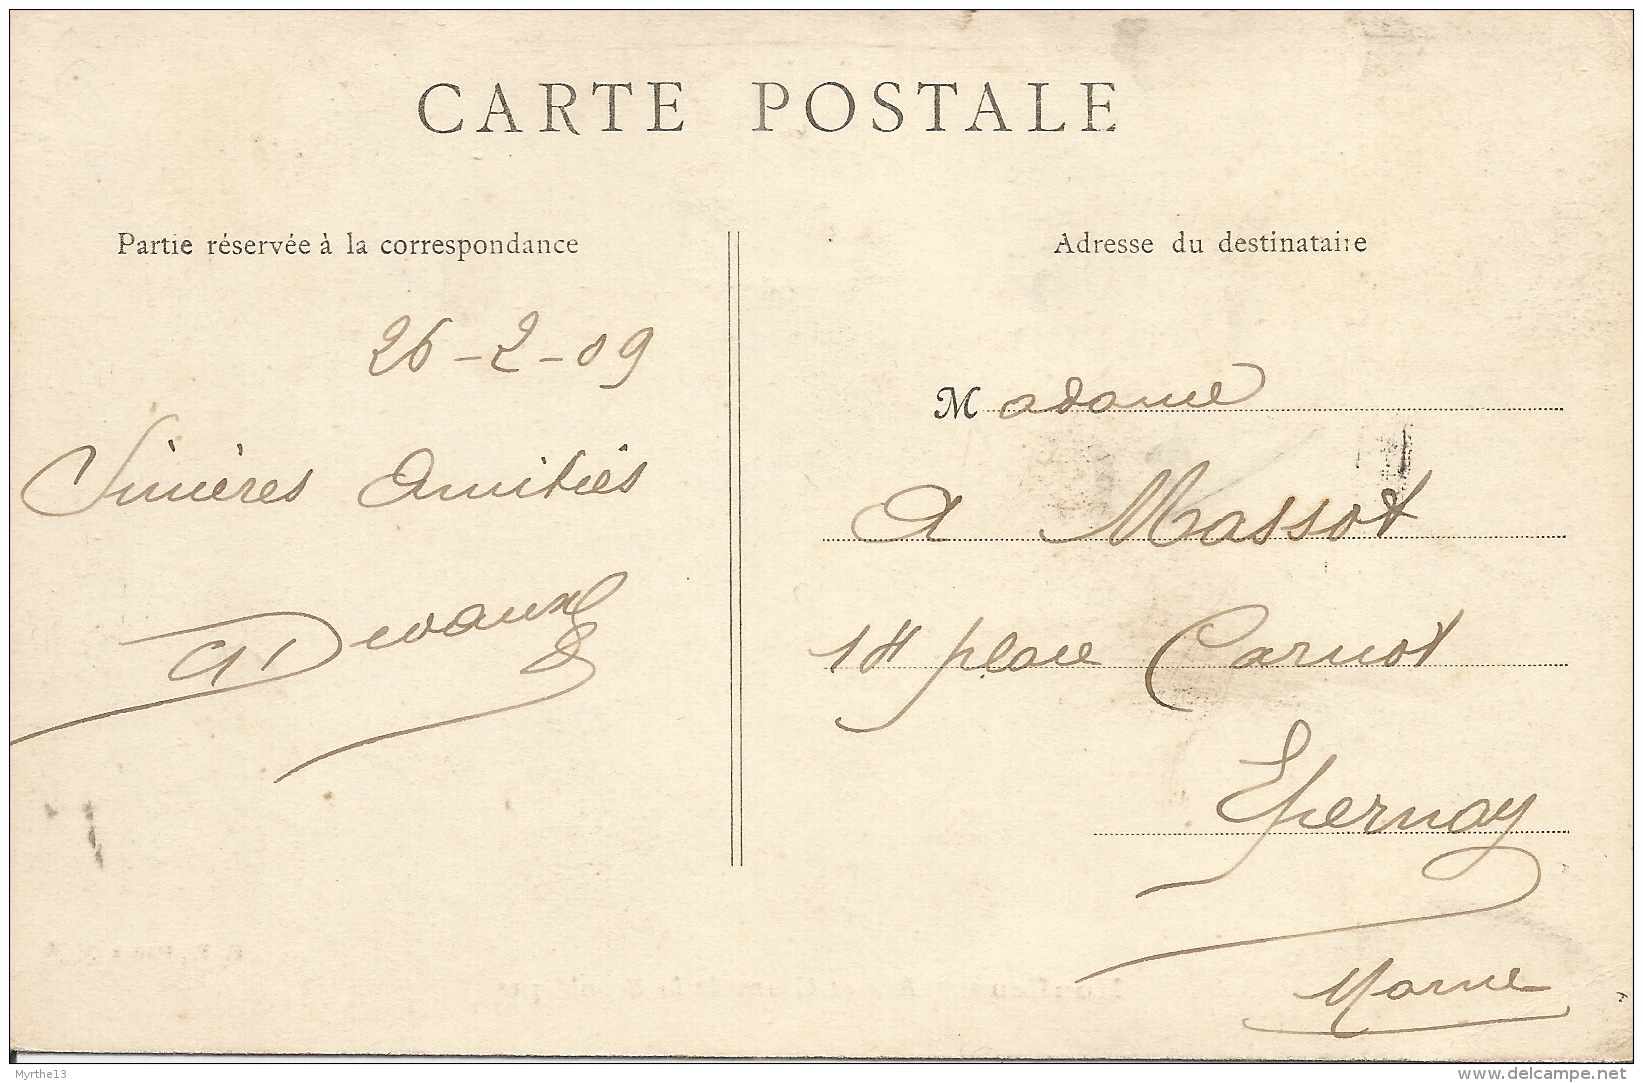 CARTE POSTALE
Partie réservée à la correspondance
26-2-09
Sincères Amitiés
Devaux
Adresse du destinataire
Madame
A Massot
place Carnot
Epernay
Marne
Myrthe13
www.delcampe.net